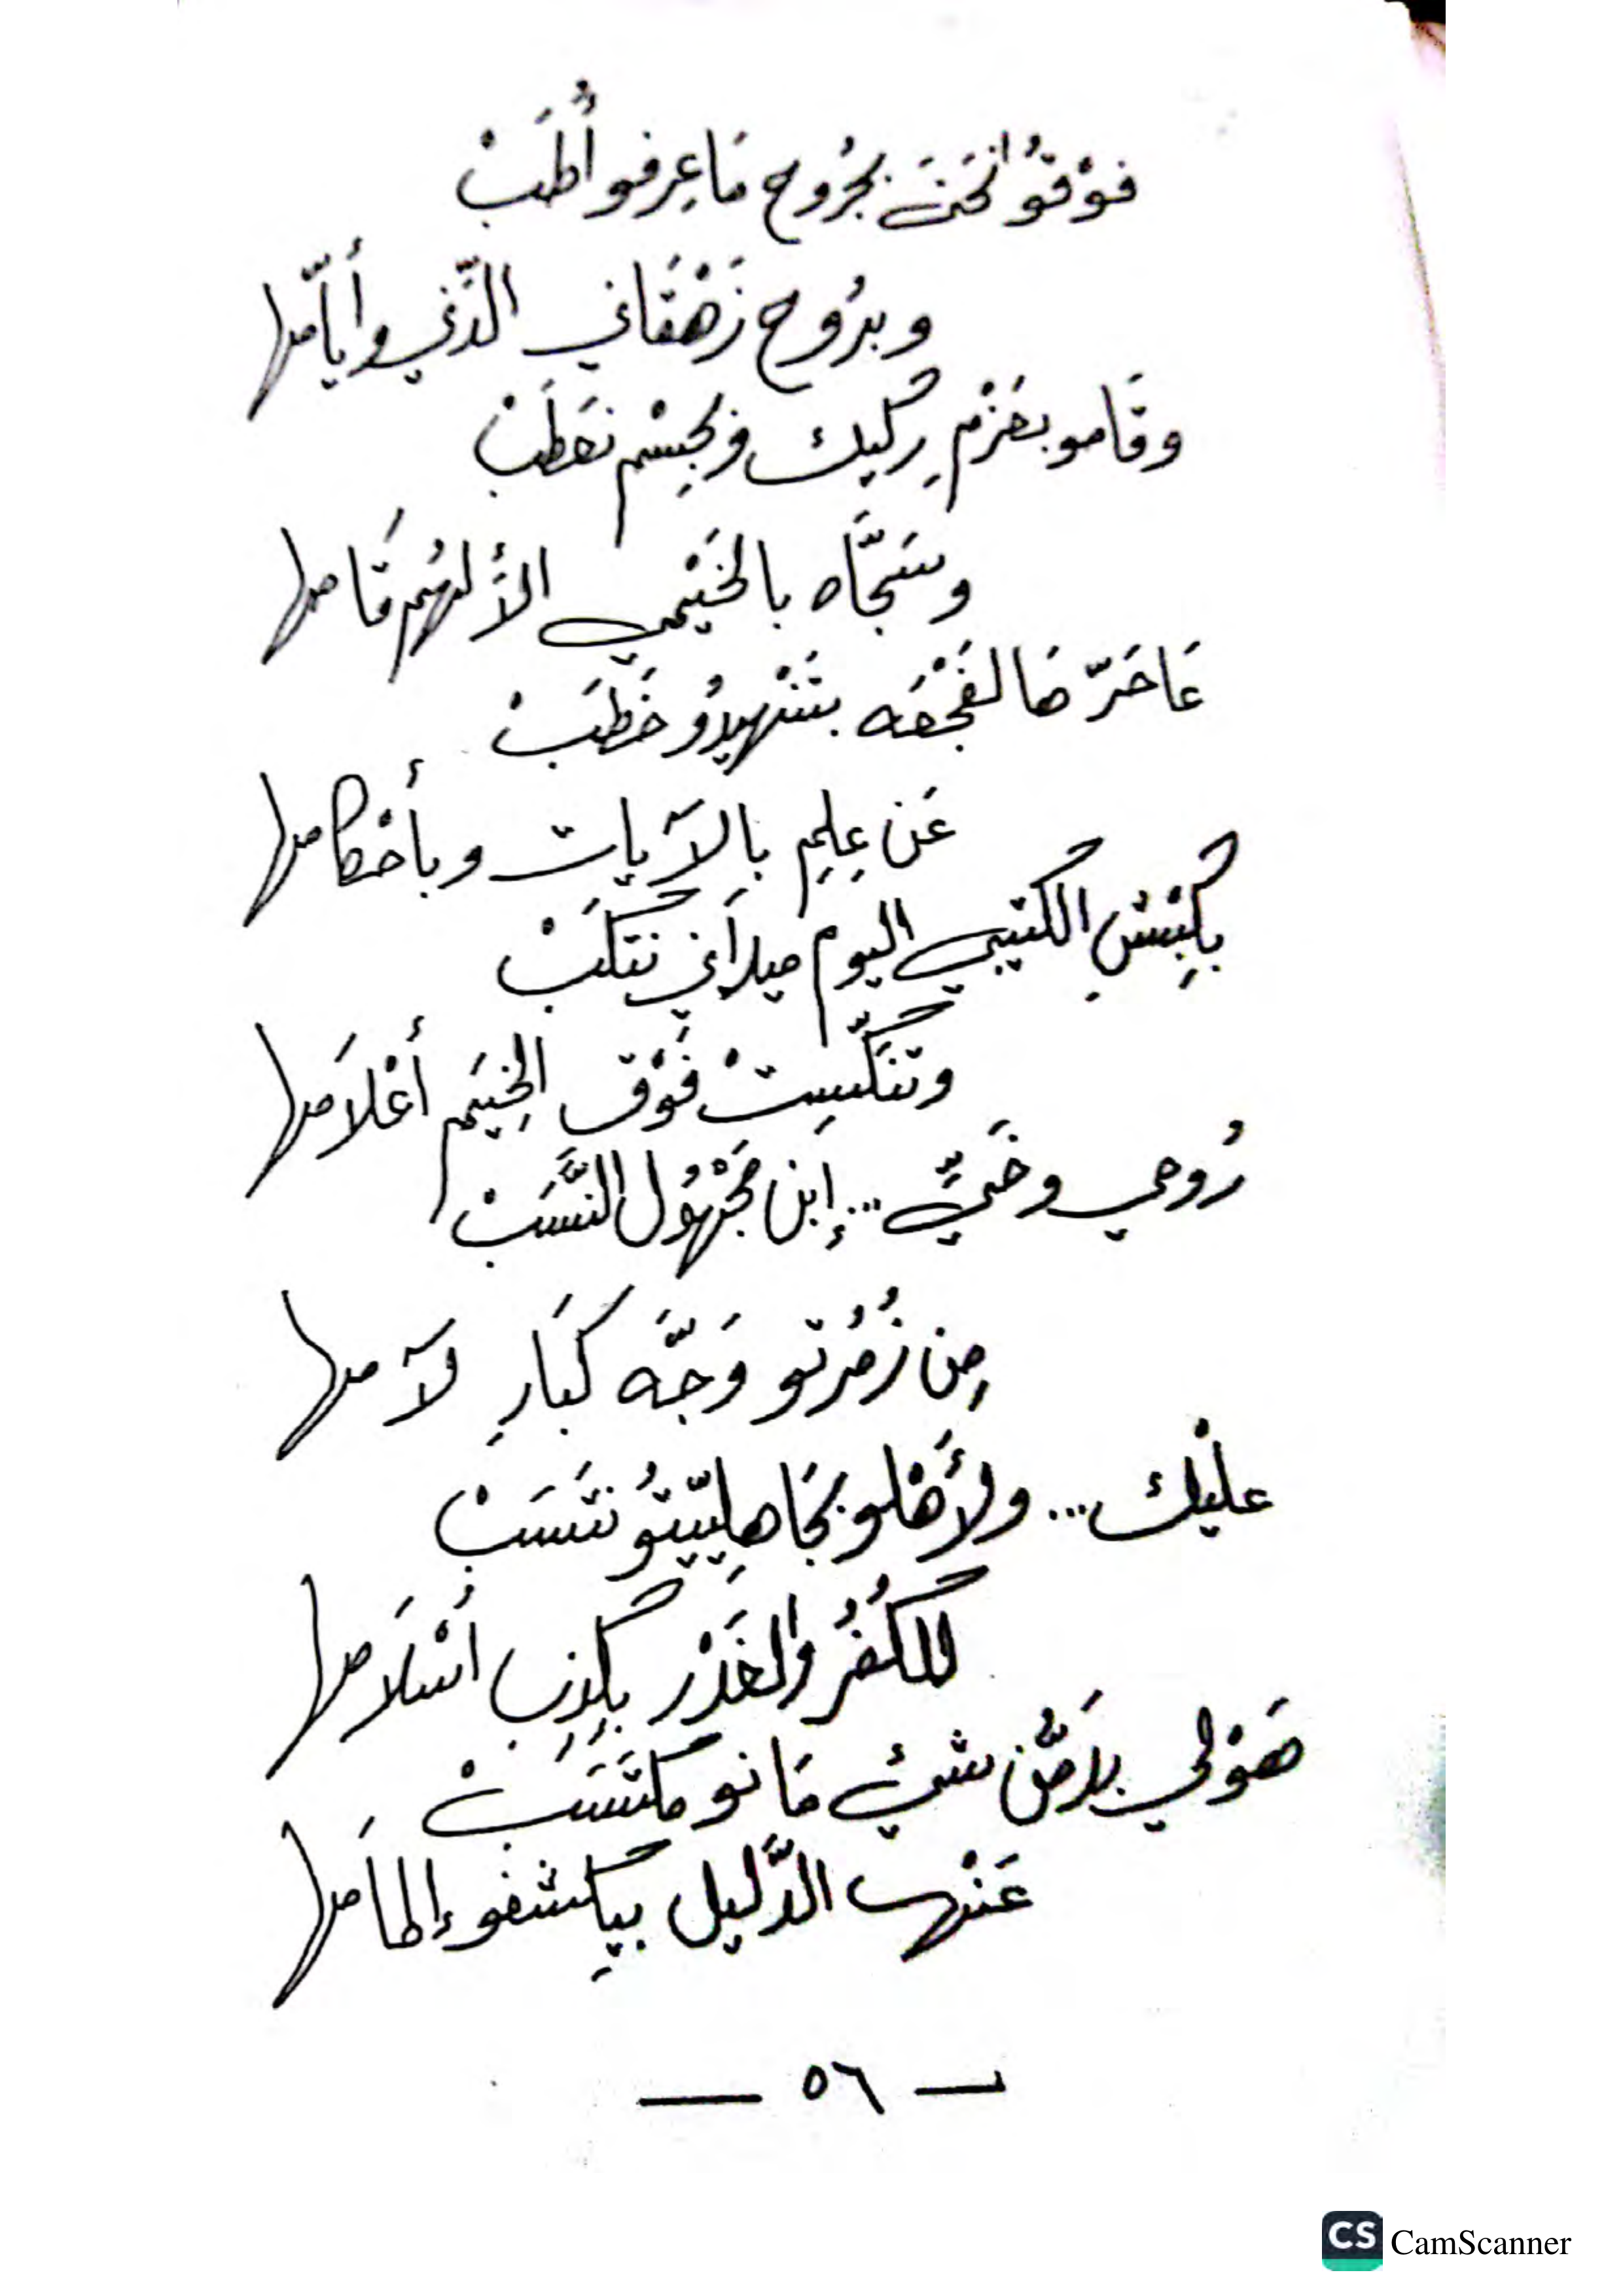 فوْقوُ انحَنَت بجرُوح مَا عِرفو أُطَبْ
وبرُوح زَهْقَاني الدَّني وأيَّامها
وقَامو بعَزْم رِكيك وبجِسْم نعَطَبْ
وسَجَّاه بالخَيْمي الأَلهُم قَامها
عَاحَرّ هَالفَجْعَه بتَنْهيدوُ خَطَبْ
عَن عِلِم بِالآيات وبأحْكامها
بكِبْشِ الكتيبي اليوم ميدَاني نتكَبْ
وتنَكَّسِتْ فَوْق الخِيَم أعْلاَمها
رُوحي وخَيّ ... إبن مَجْهُول النَّسَبْ
مِن زُمُرتو وَجَّه كبَارِ لآمها
عليْك ... ولأَهْلو بجَاهِليّتوُ نتَسَبْ
للكُفُر والغَدْر بِكِذِب اسْلاَمها
هَوْلي بلاَصّن شيّ مَانو مكتَسَبْ
عَنْهن الدَّليل بيِكشفو إلهاَمها
— ٥٦ —
CS CamScanner